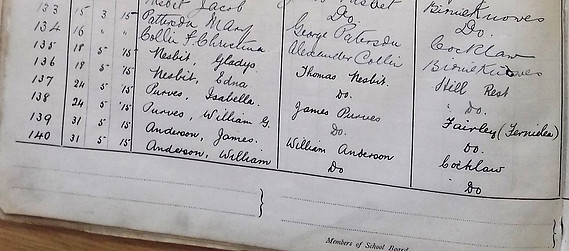 133 15 3 15 Nesbit Jacob Do. Birnieknowes
134 16 " " Paterson Mary George Paterson Do.
135 18 5 15 Collin F. Christina Alexander Collin Cocklaw
136 18 5 15 Nesbit, Gladys. Thomas Nesbit. Birnieknowes
137 24 5 15 Nesbit, Edna Do. Hill Rest
138 24 5 15 Purves, Isabella. James Purves " Do.
139 31 5 15 Purves, William G. Do. Fairley (Fernielea)
140 31 5 15 Anderson, James. William Anderson Do.
Anderson, William Do Cocklaw
" Do
Members of School Board